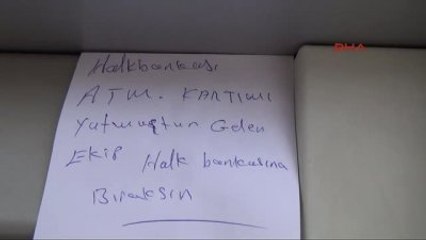 DHA
Halkbankası
ATM. KARTIMI
Yutmuştur Gelen
EKİP Halk bankasına
Bıraksın